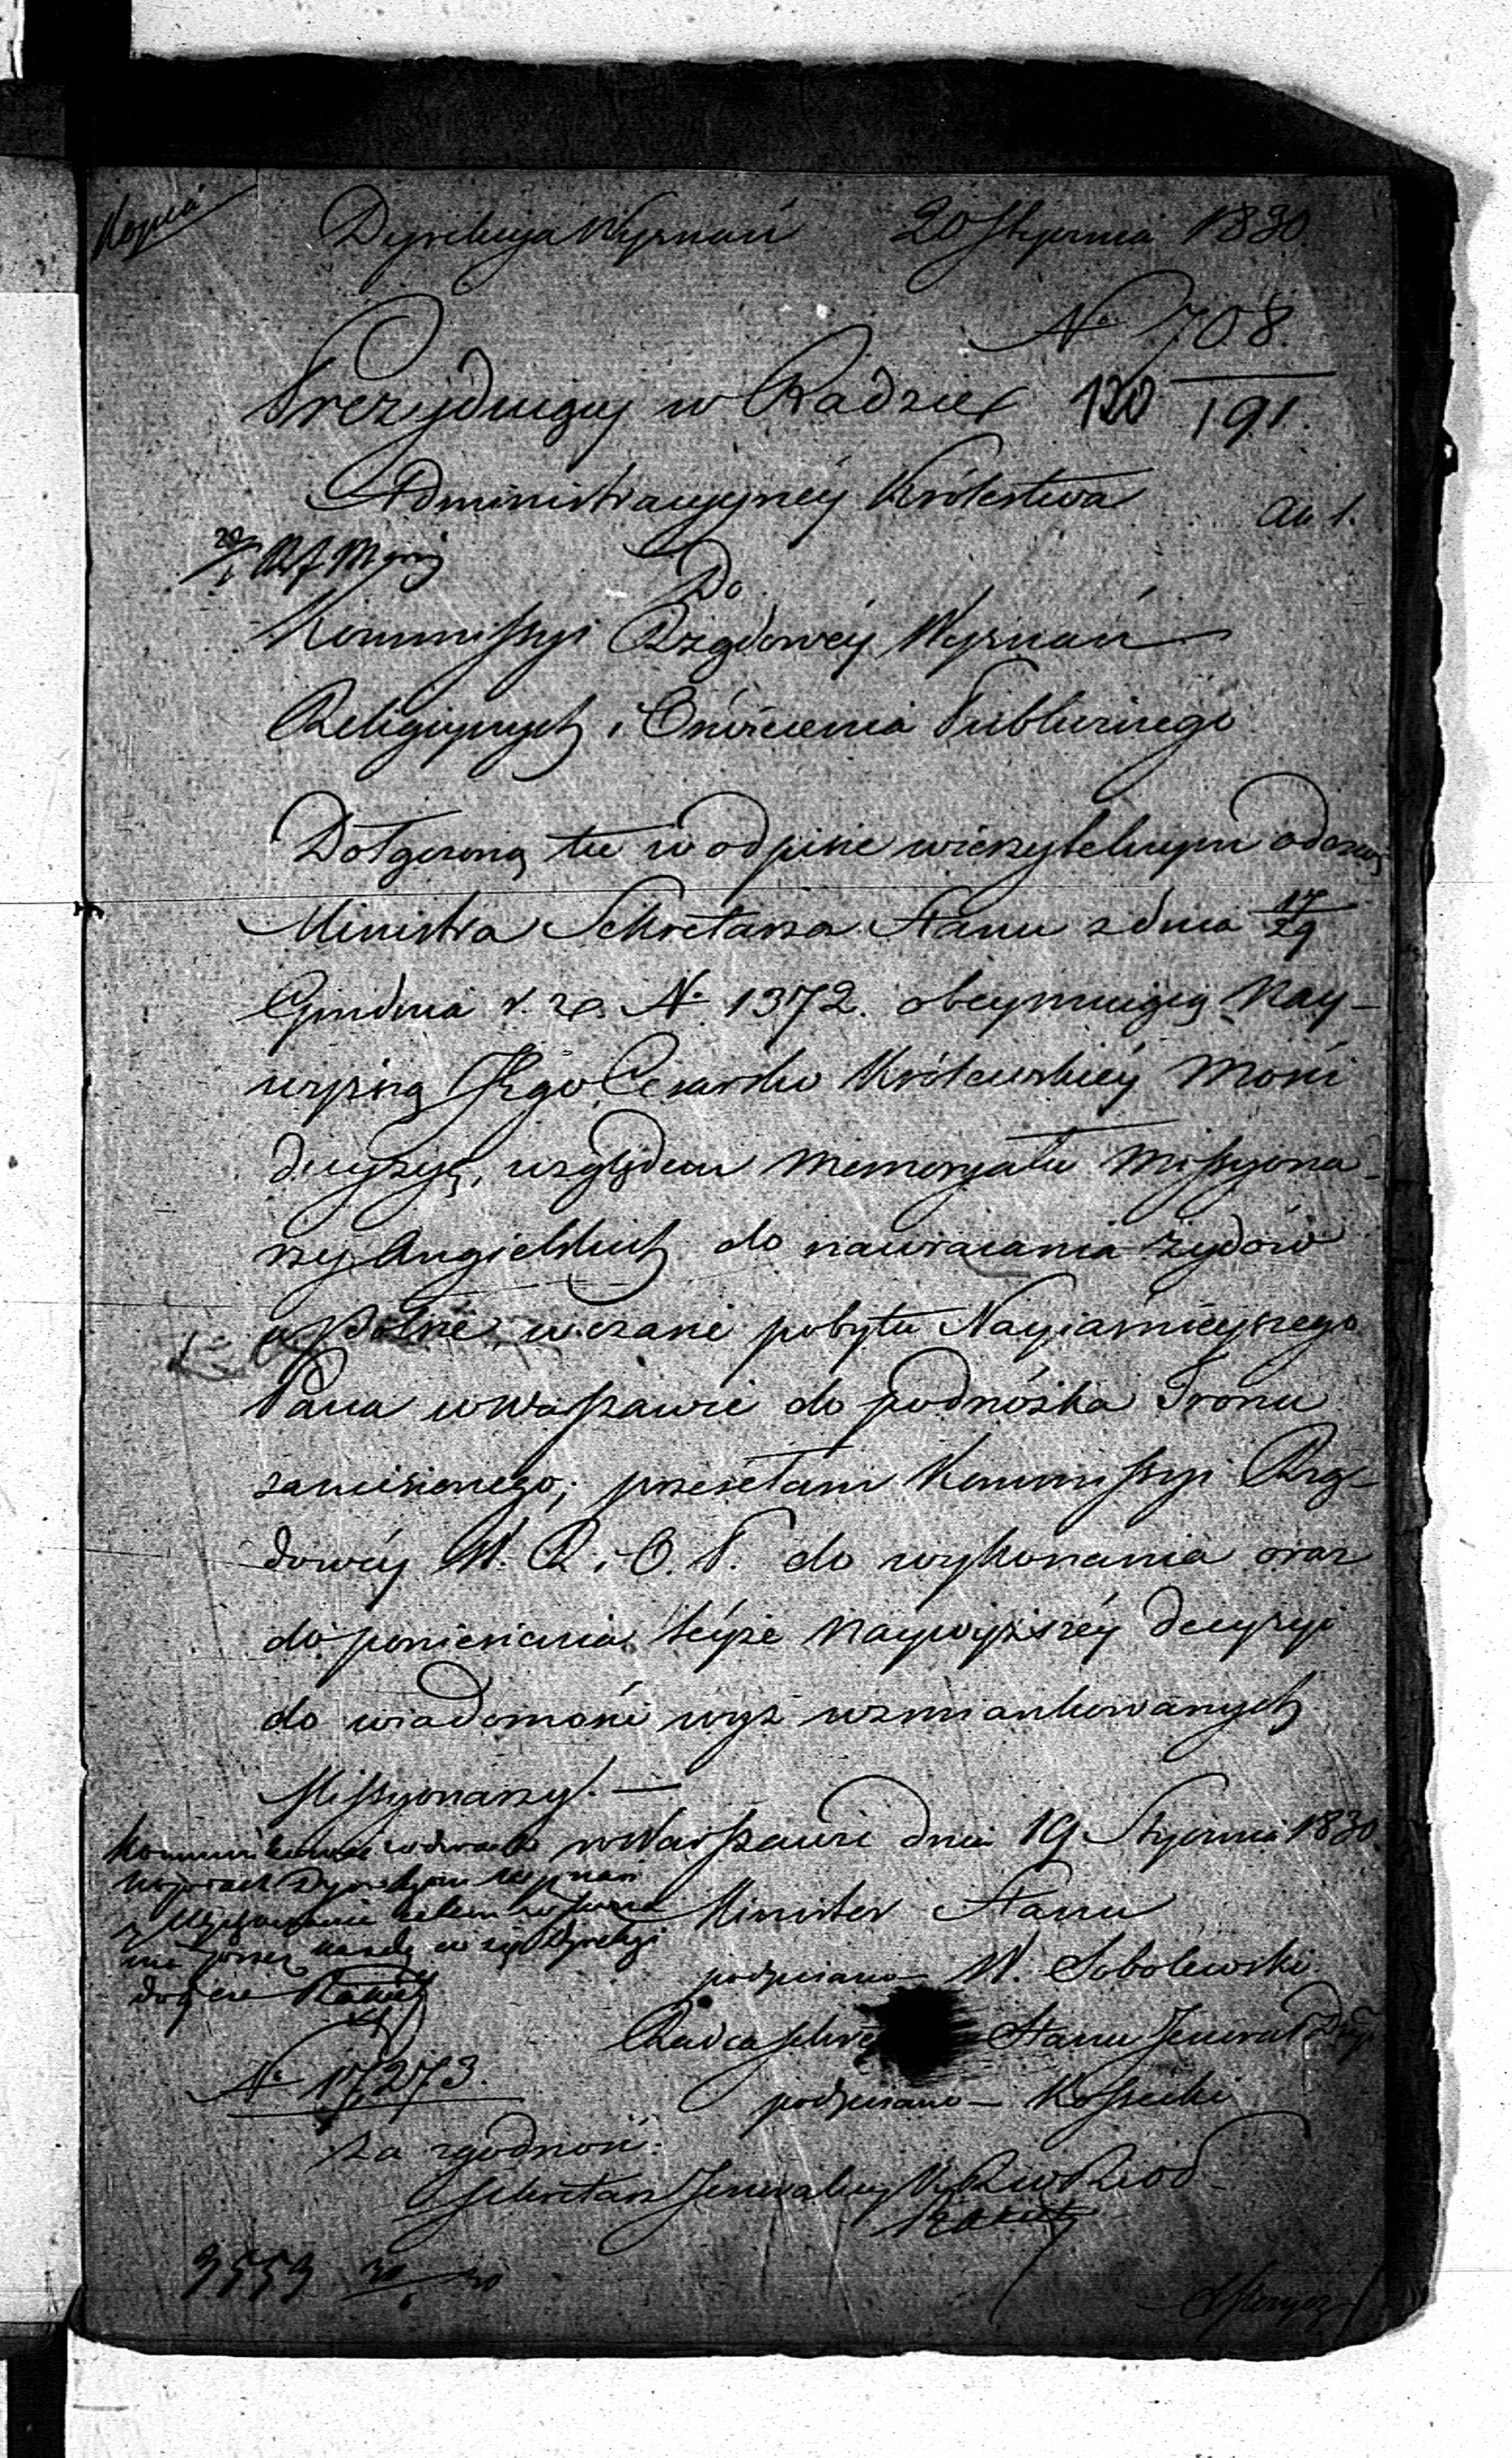 Kopia
Dyrekcya Wyznań 20 Stycznia 1830.
No 708.
Prezyduiący w Radzie 120 191
Administracyjnéy Królestwa
Do
Kommissyi Rządowéy Wyznań
Religijnych i Oświecenia Publicznego
Dołączoną tu w odpisie wierzytelnym odezwę
Ministra Sekretarza Stanu z dnia 17/29
Grudnia r. z. No 1372. obeymuiącą Nay-
wyższą Jego Cesarsko Królewskiéy Mości
decyzyę, względem Memoryału Missyona-
rzy Angielskich do nawracania żydów
w Polsce, w czasie pobytu Nayiaśnieyszego
Pana w Warszawie do podnóżka Tronu
zaniesionego; przesełam Kommissyi Rzą-
dowéy W. R. i O. P. do wykonania oraz
do poniesienia téyże Naywyższéy decyzyi
do wiadomości wyż wzmiankowanych
Missyonarzy. —
w Warszawie dnia 19 Stycznia 1830.
Minister Stanu
podpisano W. Sobolewski.
Radca Sekre Stanu Jenerał
podpisano — Kossecki
No 17,273.
Za zgodność:
Sekretarz Jeneralny
3553 30